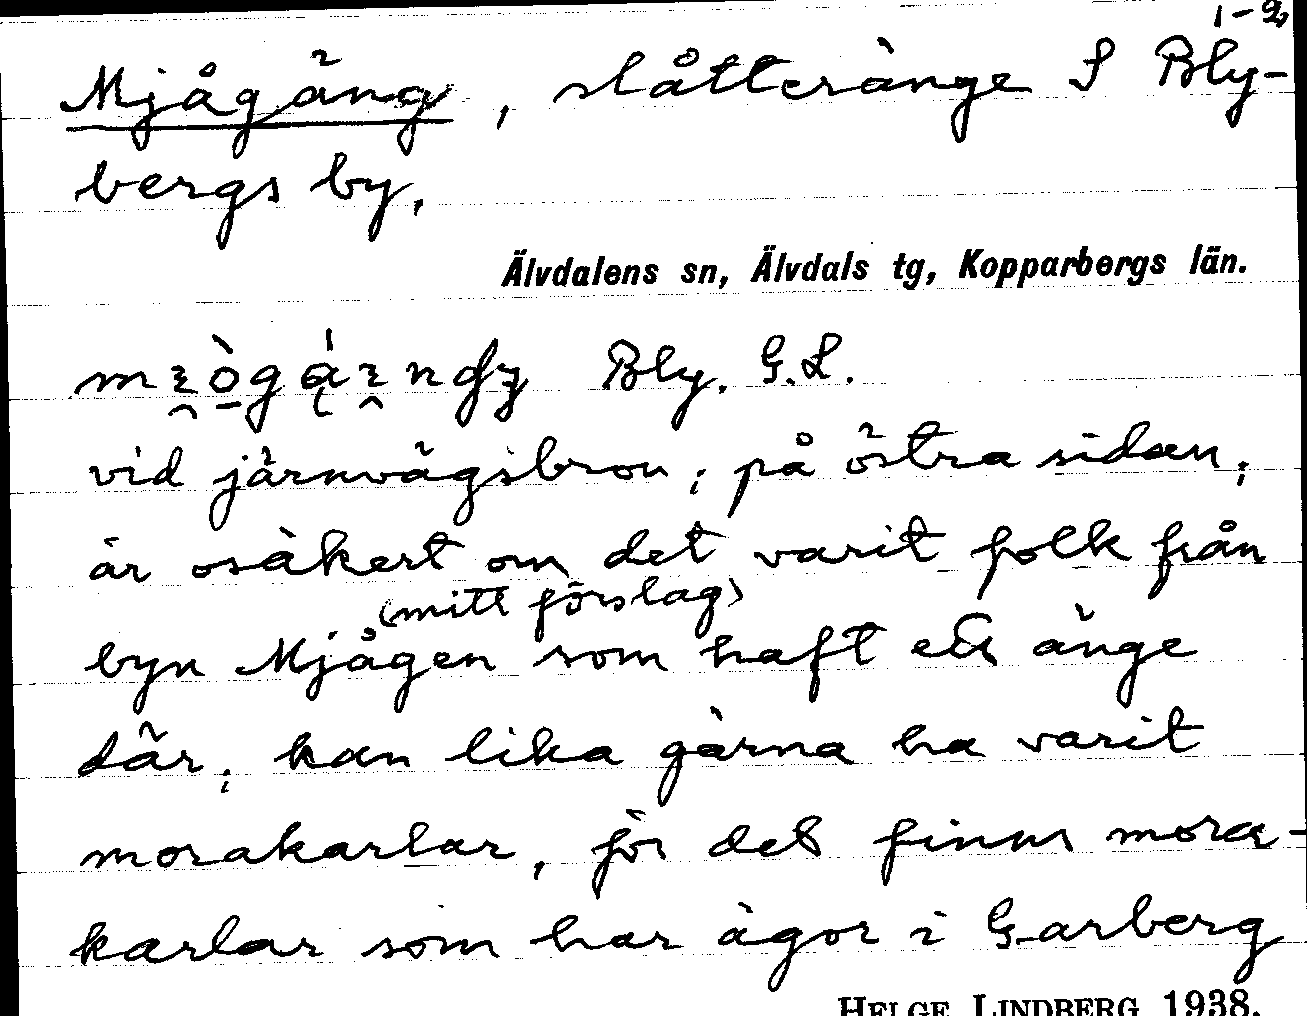 1-2,
Mjågäng, slåtteränge S Bly-
bergs by,
Älvdalens sn, Älvdals tg, Kopparbergs län.
Bly. G.L.
vid järnvägsbron; på östra sidan;
är osäkert om det varit folk från
(mitt förslag)
byn Mjågen som haft ett änge
där; kan lika gärna ha varit
morakarlar, för det finns mora-
karlar som har ägor i Garberg
HELGE LINDBERG 1938.